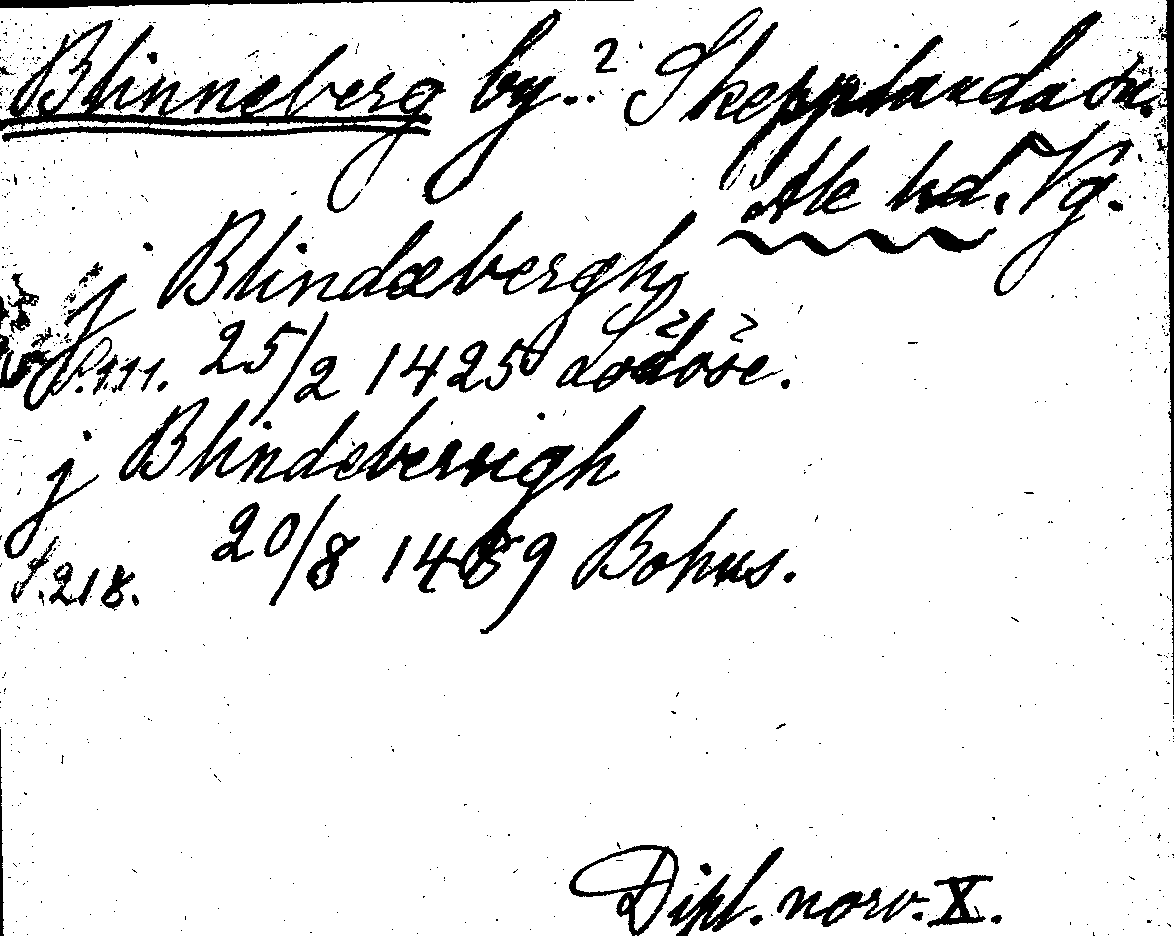 Blinneberg by..? Skepplanda sn.
Ale hd. Vg.
j Blindæbergh,
S. 111. 25/2 1425 Lödöse.
j Blindeberrigh
S. 218. 20/8 1489 Bohus.
Dipl. norv. X.